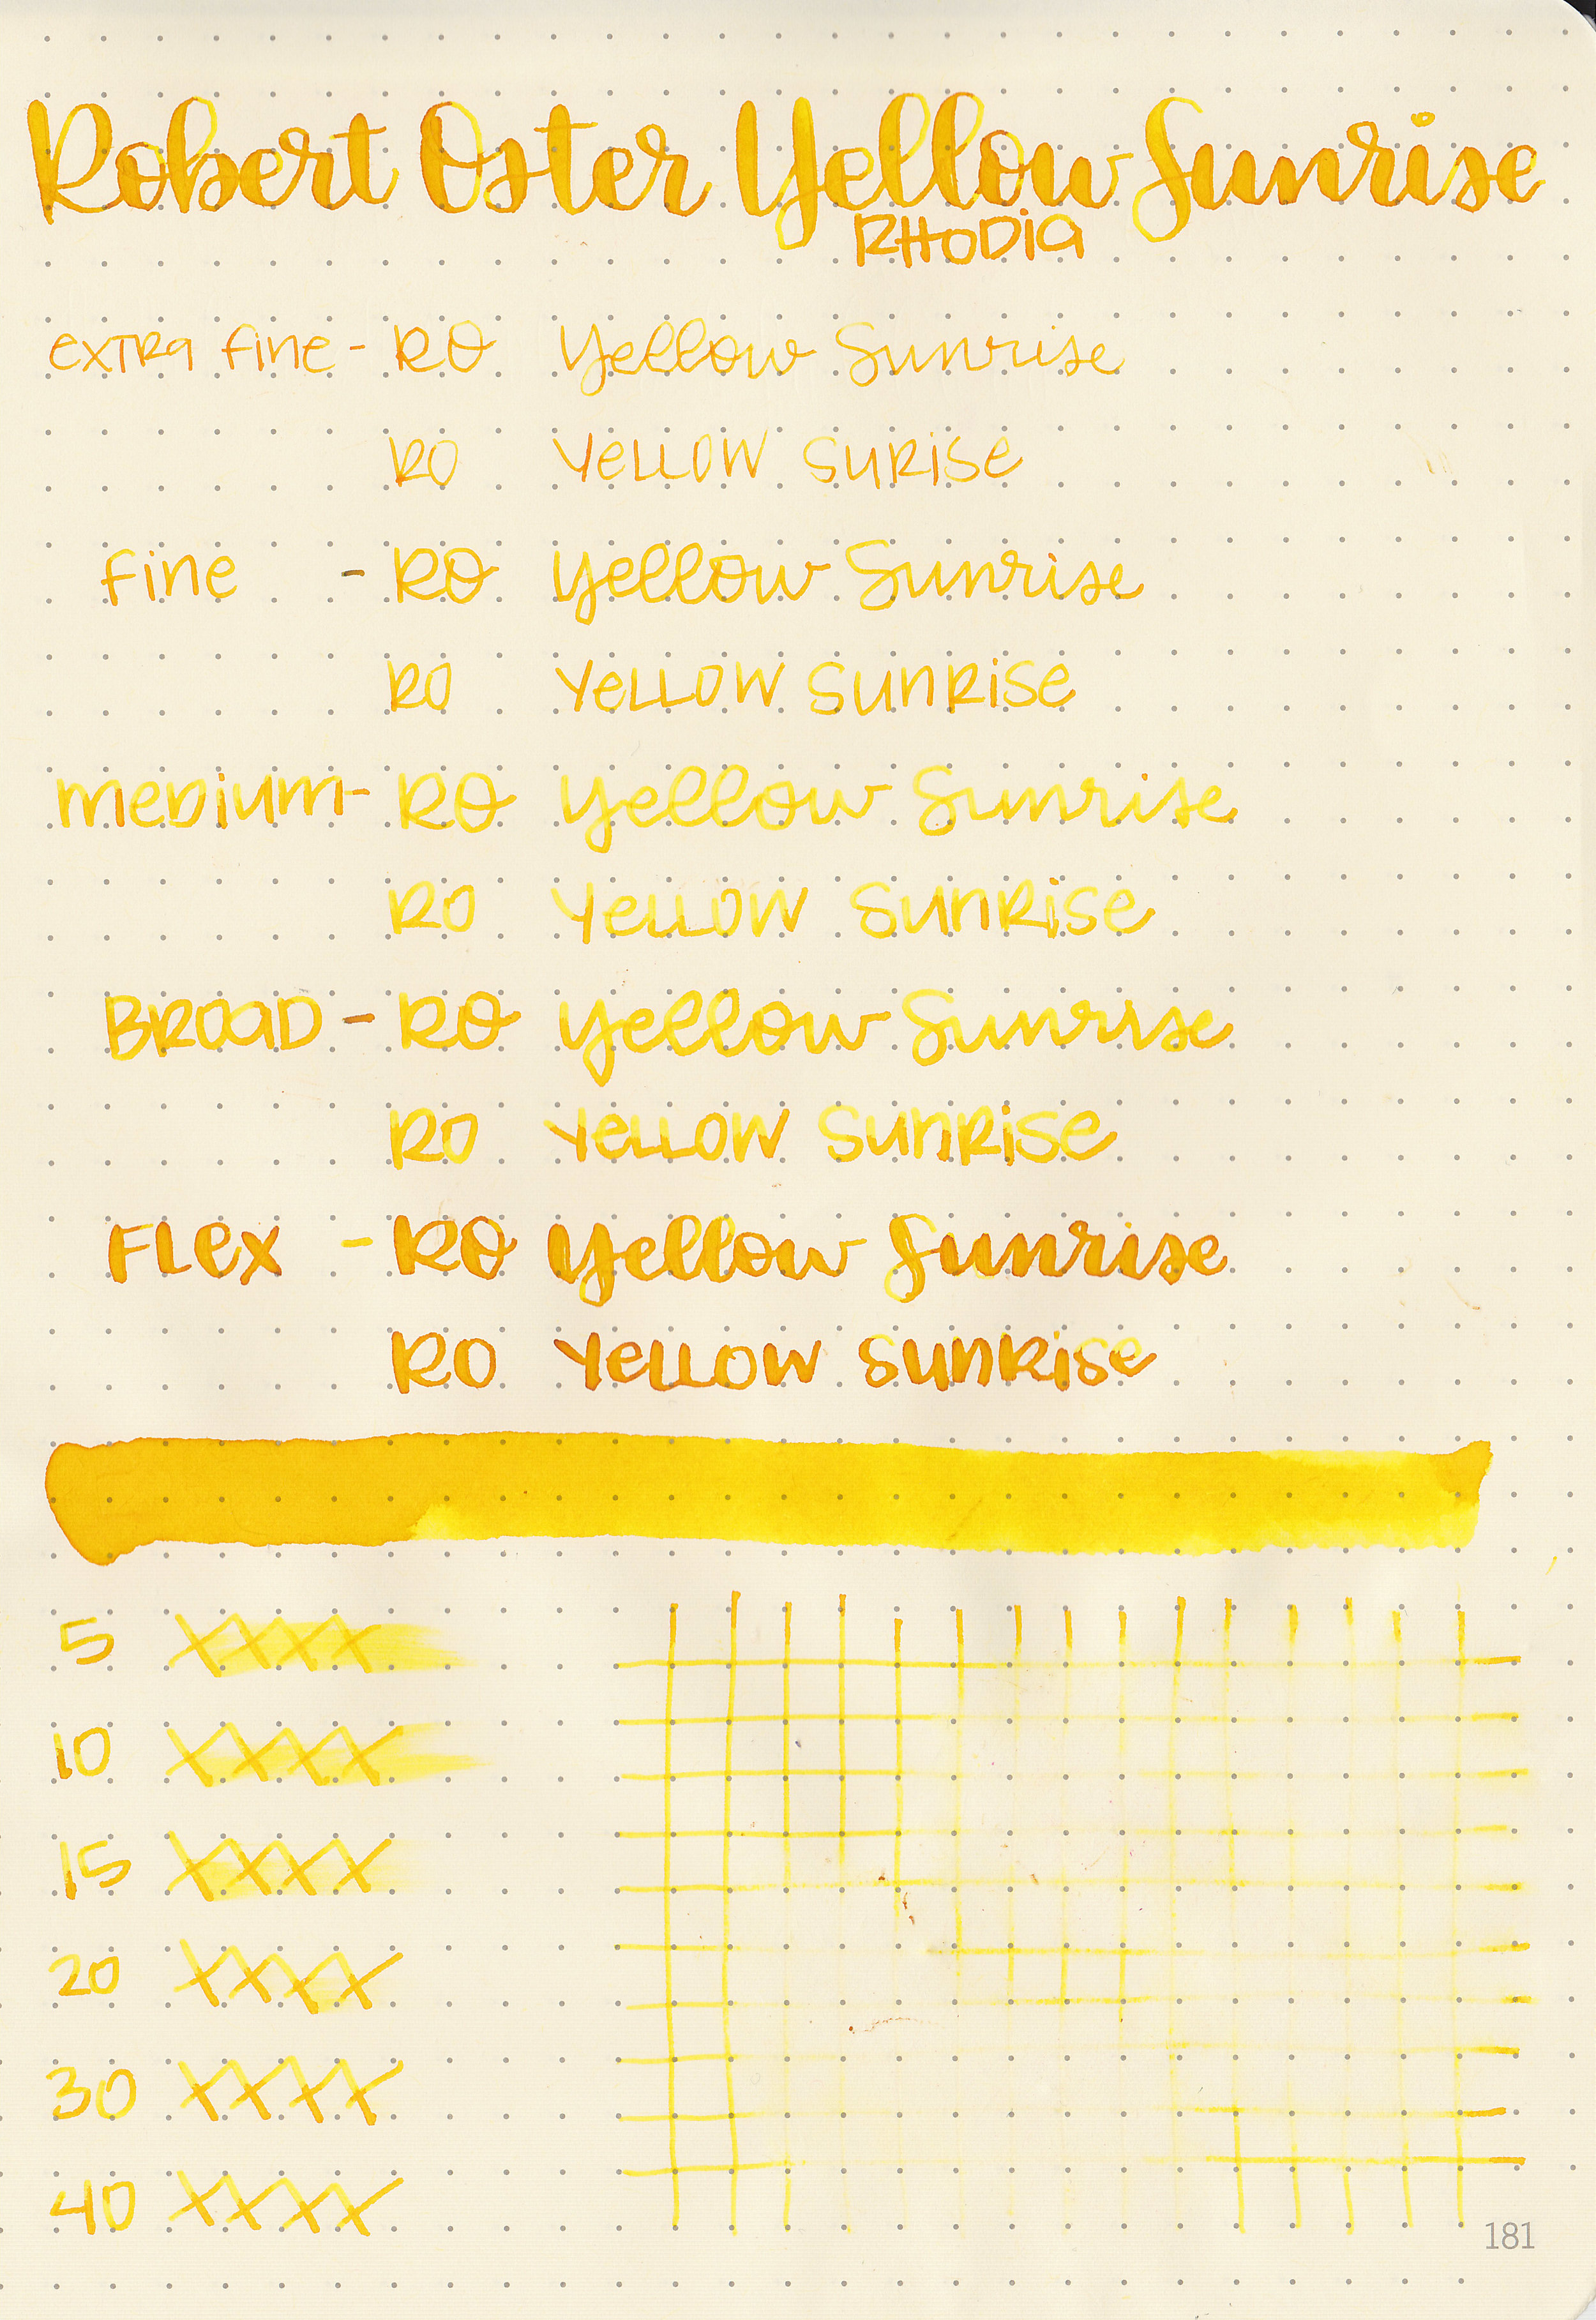 Robert Oster Yellow Sunrise
RHODIA
EXTRA FINE - RO Yellow Sunrise
RO YELLOW SURISE
FINE - RO Yellow Sunrise
RO YELLOW SUNRISE
MEDIUM - RO Yellow Sunrise
RO YELLOW SUNRISE
BROAD - RO Yellow Sunrise
RO YELLOW SUNRISE
FLEX - RO Yellow Sunrise
RO YELLOW SUNRISE
5 XXXX
10 XXXX
15 XXXX
20 XXXX
30 XXXX
40 XXXX
181